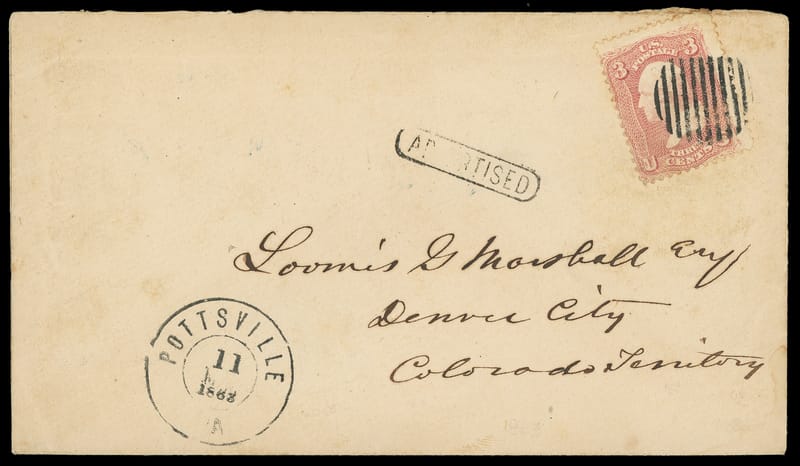 3 U.S. 3
POSTAGE
THREE
CENTS
ADVERTISED
Loomis G Marshall Esq
Denver City
Colorado Territory
POTTSVILLE
11
1863